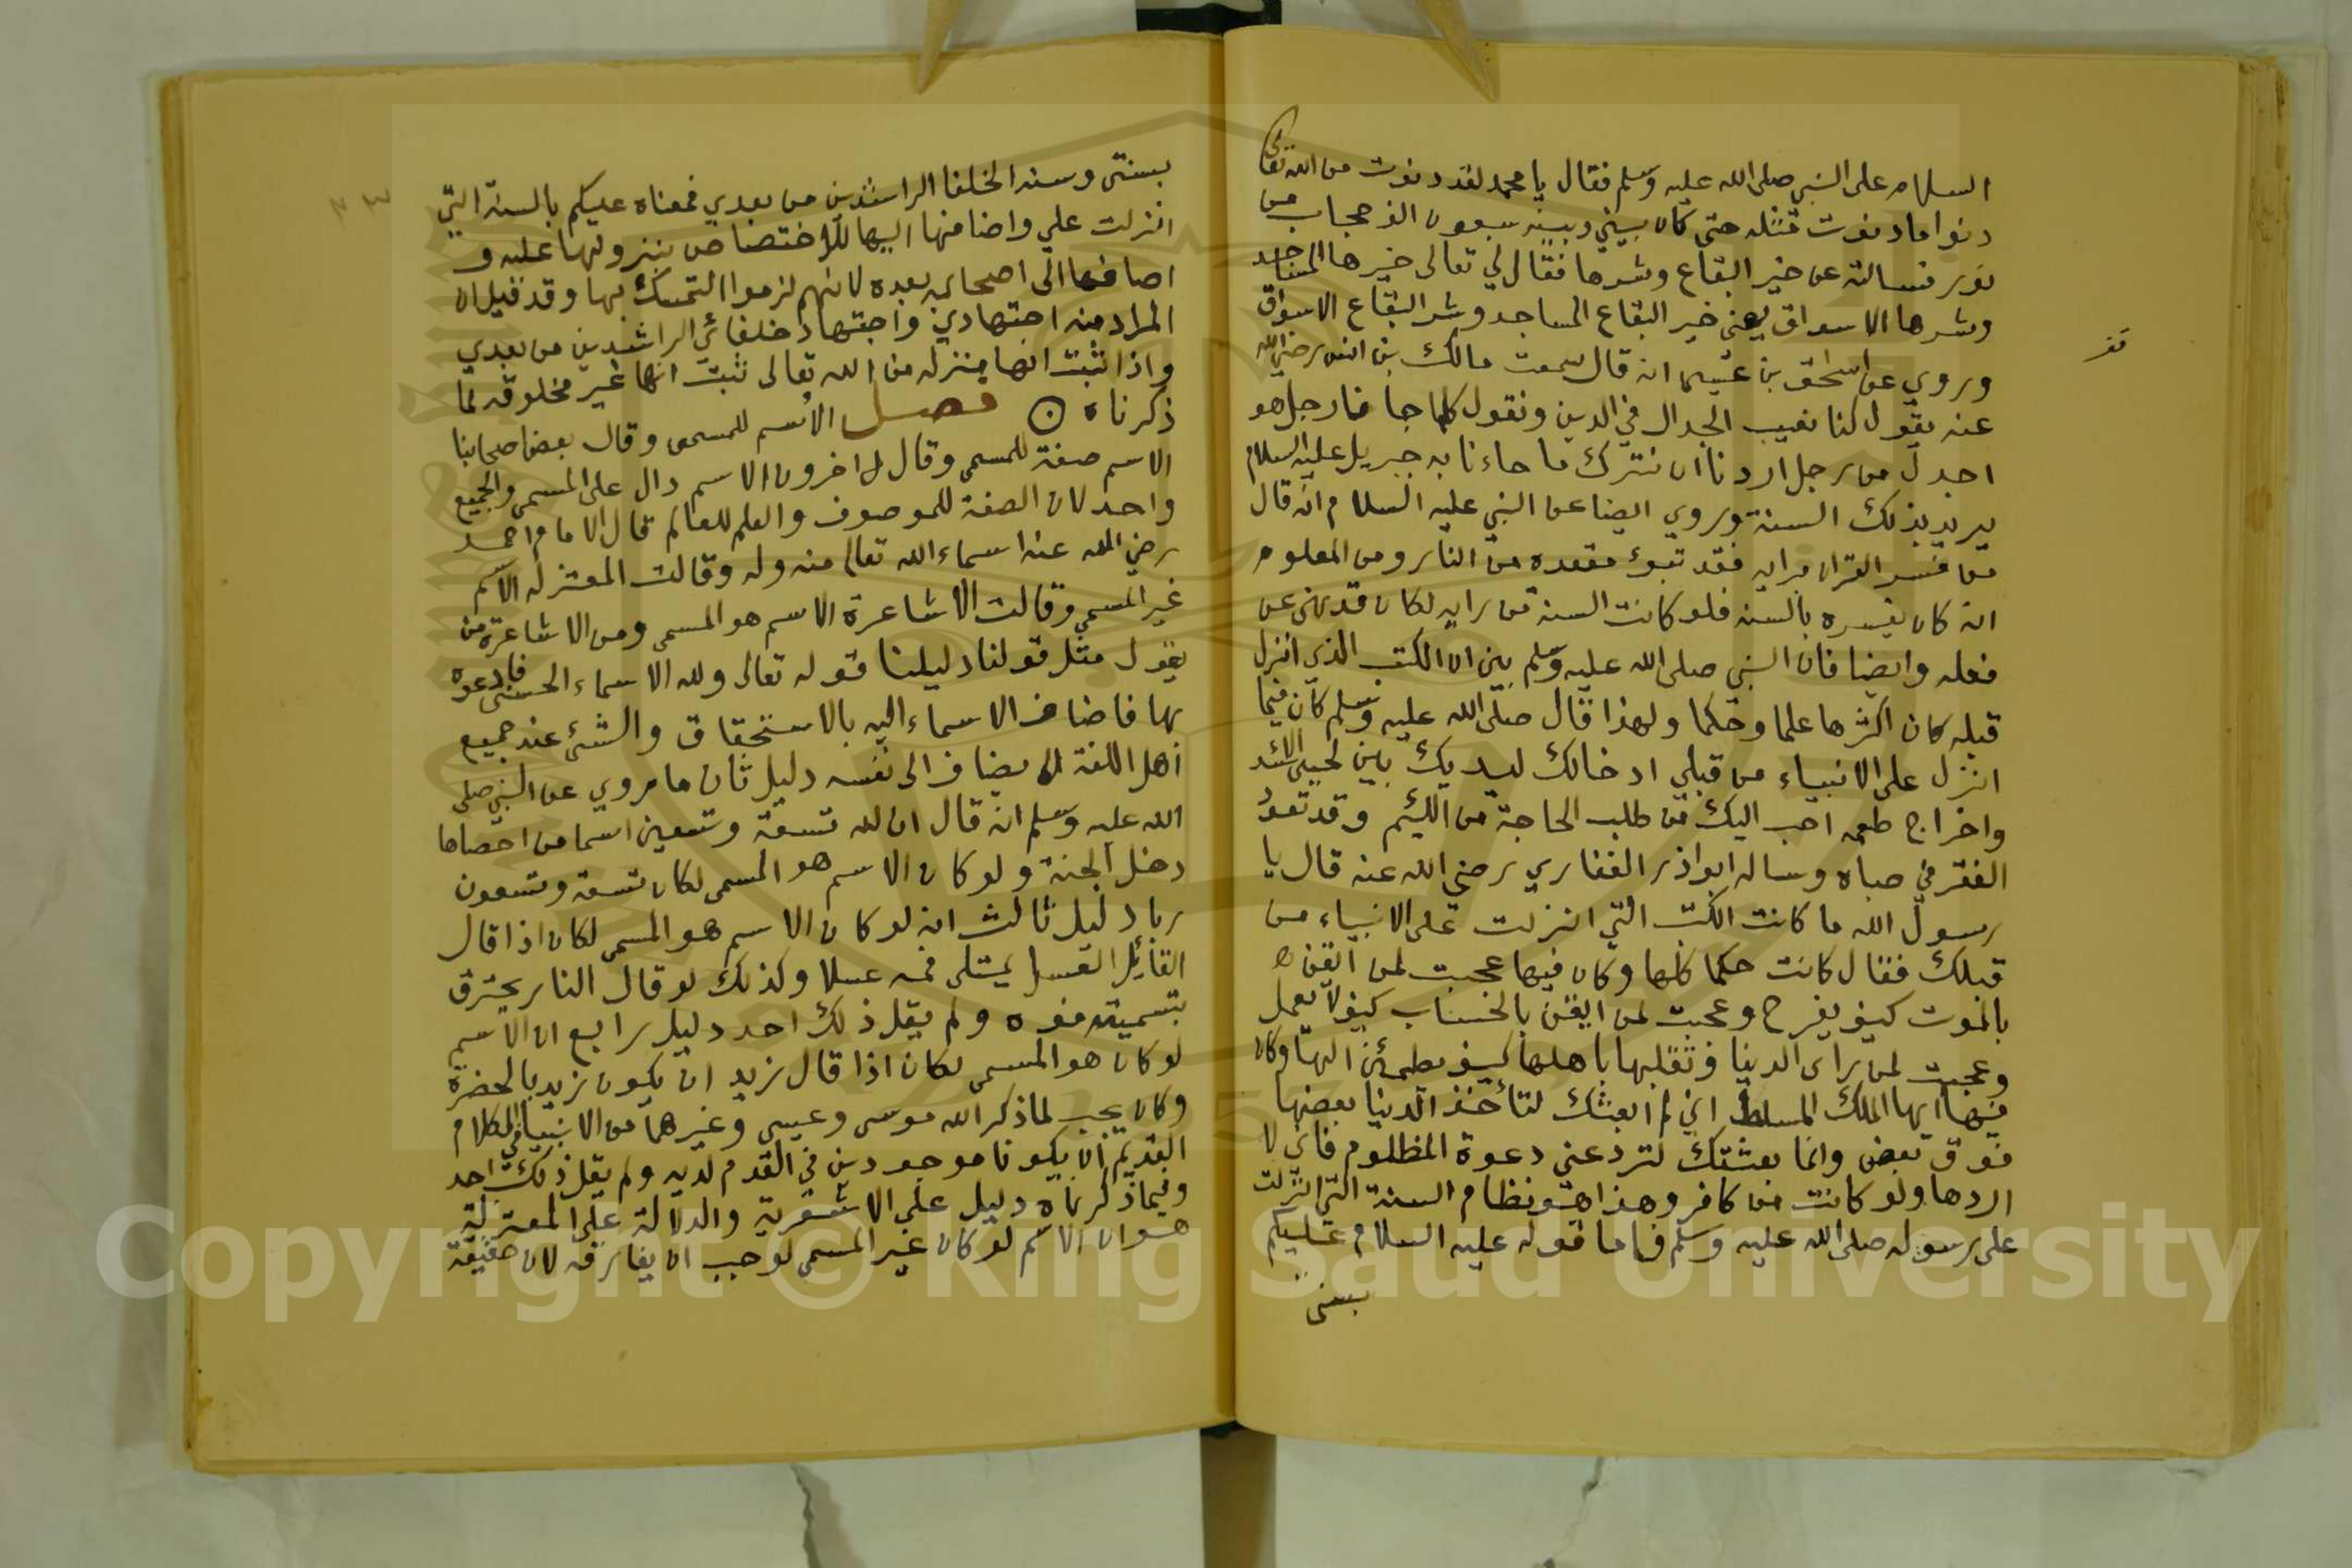 السلام على النبي صلى الله عليه وسلم فقال يا محمد لقد دنوت من الله تعالى
دنوا ما دنوت مثله حتى كان بيني وبينه سبعون الف حجاب من
نور فسالته عن خير البقاع وشرها فقال لي تعالى خيرها المساجد
وشرها الاسواق يعني خير البقاع المساجد وشر البقاع الاسواق
وروي عن اسحق بن عيسى انه قال سمعت مالك بن انس رضي الله
قف
عنه يقول كنا نعيب الجدال في الدين ونقول كلما جانا رجل هو
اجدل من رجل اردنا ان نترك ما جاءنا به جبريل عليه السلام
يريد بذلك السنة وروي ايضا عن النبي عليه السلام انه قال
من فسر القران برايه فقد تبوئ مقعده من النار ومن المعلوم
انه كان يفسره بالسنه فلو كانت السنة من رايه لكان قد نهى عن
فعله وايضا فان النبي صلى الله عليه وسلم بين ان الكتب الذي انزل
قبله كان اكثرها علما وحكما ولهذا قال صلى الله عليه وسلم كان فيما
انزل على الانبياء من قبلي ادخالك ليديك بين لحيي الاسد
واخراج طعمه احب اليك من طلب الحاجة من اللئيم وقد تعود
الفقر في صباه وساله ابو اذر الغفاري رضي الله عنه قال يا
رسول الله ما كانت الكتب التي انزلت على الانبياء من
قبلك فقال كانت حكما كلها وكان فيها عجبت لمن ايقن
بالموت كيف يفرح وعجبت لمن ايقن بالحساب كيف لا يعمل
وعجبت لمن راى الدنيا وتقلبها باهلها كيف يطمئن اليها وكان
فيها ايها الملك المسلط اني لم ابعثك لتأخذ الدنيا بعضها
فوق بعض وانما بعثتك لترد عني دعوة المظلوم فاني لا
اردها ولو كانت من كافر وهذا هو نظام السنة التي انزلت
على رسوله صلى الله عليه وسلم فاما قوله عليه السلام عليكم
بسنتي
بسنتي وسنه الخلفا الراشدين من بعدي فمعناه عليكم بالسنة التي
انزلت علي واضافها اليها للاختصاص بنزولها عليه و
اضافها الى اصحابه بعده لانهم لزموا التمسك بها وقد قيل ان
المراد منه اجتهادي واجتهاد خلفائي الراشدين من بعدي
واذا ثبت انها منزله من الله تعالى ثبت انها غير مخلوقه لما
ذكرناه فصل الاسم للمسمى وقال بعض اصحابنا
الاسم صفة للمسمى وقال اخرون الاسم دال على المسمى والجميع
واحد لان الصفة للموصوف والعلم للعالم قال الامام احمد
رضي الله عنه اسماء الله تعالى منه وله وقالت المعتزله الاسم
غير المسمى وقالت الاشاعرة الاسم هو المسمى ومن الاشاعرة من
يقول مثل قولنا دليلنا قوله تعالى ولله الاسماء الحسنى فادعوه
بها فاضاف الاسماء اليه بالاستحقاق والشئ عند جميع
اهل اللغة لا يضاف الى نفسه دليل ثان ما روي عن النبي صلى
الله عليه وسلم انه قال ان لله تسعة وتسعين اسما من احصاها
دخل الجنة ولو كان الاسم هو المسمى لكان تسعة وتسعون
ربا دليل ثالث انه لو كان الاسم هو المسمى لكان اذا قال
القائل العسل يمتلى فمه عسلا وكذلك لو قال النار يحترق
بتسميته فوه ولم يقل ذلك احد دليل رابع ان الاسم
لو كان هو المسمى لكان اذا قال زيد ان يكون زيد بالحضرة
وكان يجب لما ذكر الله موسى وعيسى وغيرهما من الانبيا في الكلام
القديم ان يكونا موجودين في القدم لديه ولم يقل ذلك احد
وفيما ذكرناه دليل على الاشعرية والدلالة على المعتزلة
هو ان الاسم لو كان غير المسمى لوجب ان يفارقه لان حقيقة
٣٣
Copyright © King Saud University